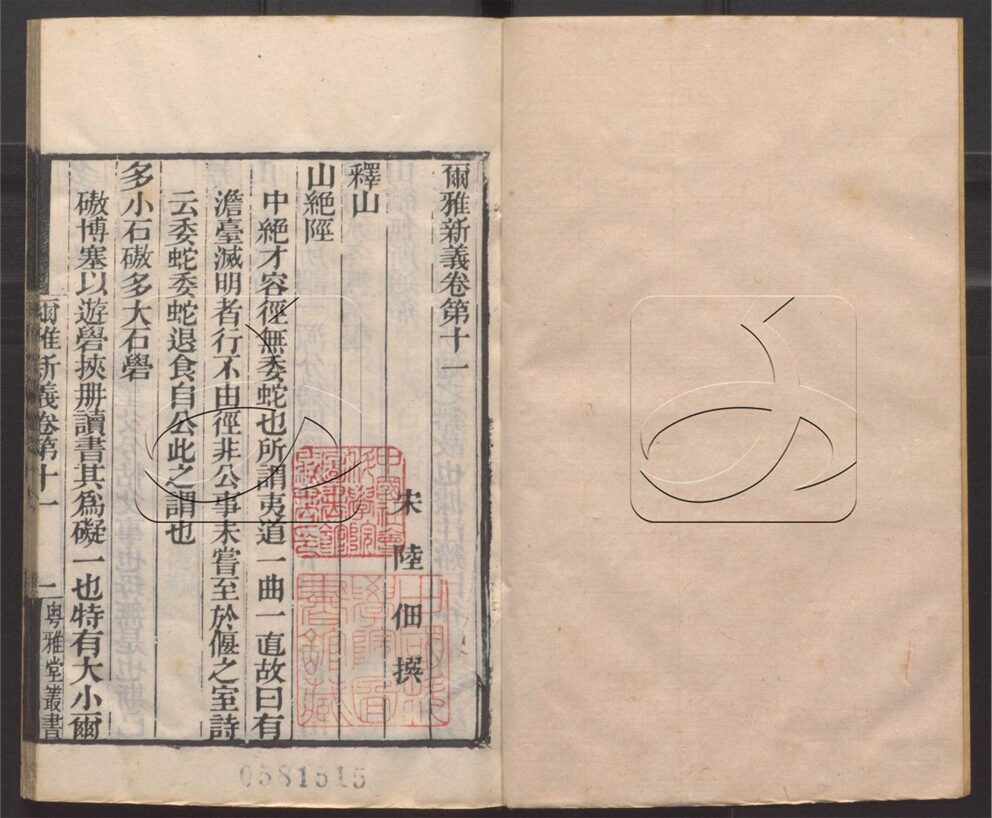 爾雅新義卷第十一
宋 陸 佃 撰
釋山
山絕陘
中絕才容徑無委蛇也所謂夷道一曲一直故曰有
澹臺滅明者行不由徑非公事未嘗至於偃之室詩
云委蛇委蛇退食自公此之謂也
多小石磝多大石礐
磝博塞以遊礐挾册讀書其爲礙一也特有大小爾
爾雅新義卷第十一
一
粵雅堂叢書
0581515